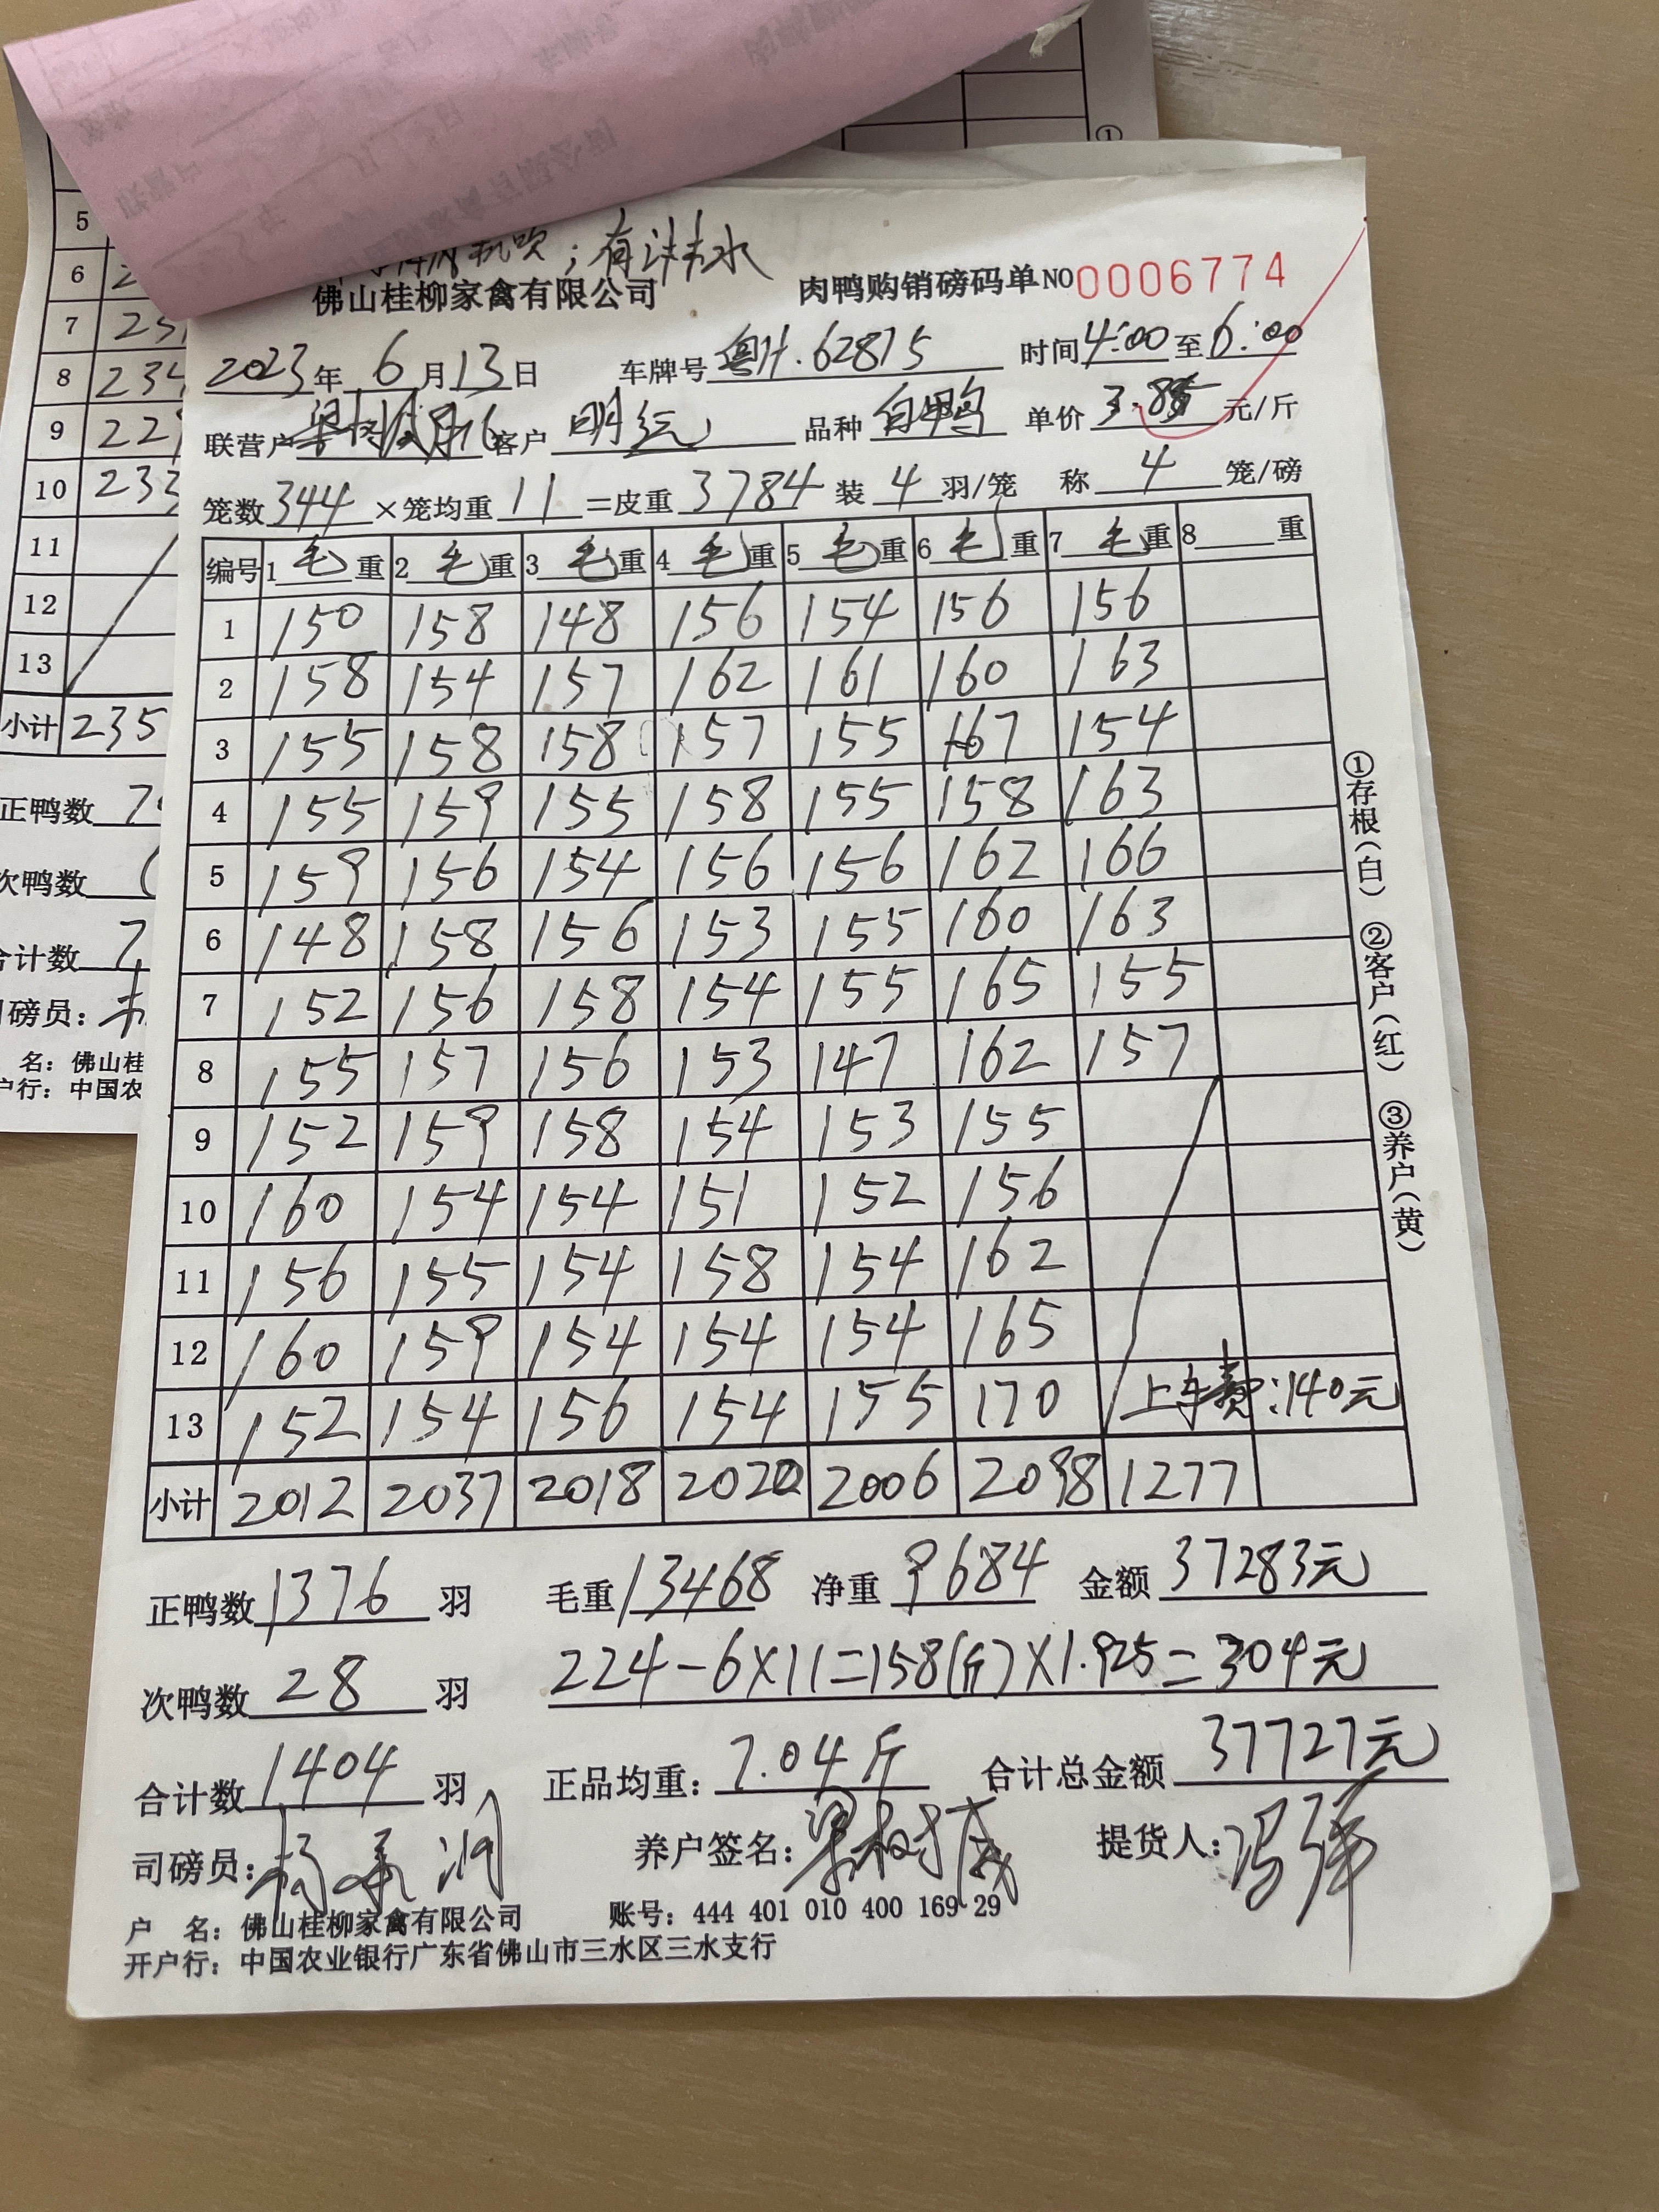 5
6
7
8 234
9 229
10 233
11
12
13
小计 235
正鸭数
次鸭数
合计数
磅员:
名: 佛山桂
户行: 中国农
机吹;有沐水
佛山桂柳家禽有限公司 肉鸭购销磅码单 NO 0006774
2023年 6月13日 车牌号 粤H.62815 时间4:00至6:00
联营户 客户 明 品种 白鸭 单价 3.85 元/斤
笼数344×笼均重 11 =皮重 3784 装 4 羽/笼 称 4 笼/磅
编号 1毛重 2毛重 3毛重 4毛重 5毛重 6毛重 7毛重 8 重
1 150 158 148 156 154 156 156
2 158 154 157 162 161 160 163
3 155 158 158 157 155 167 154
4 155 159 155 158 155 158 163
5 159 156 154 156 156 162 166
6 148 158 156 153 155 160 163
7 152 156 158 154 155 165 155
8 155 157 156 153 147 162 157
9 152 159 158 154 153 155
10 160 154 154 151 152 156
11 156 155 154 158 154 162
12 160 159 154 154 154 165
13 152 154 156 154 155 170 上车费:140元
小计 2012 2037 2018 2020 2006 2098 1277
正鸭数 1376 羽 毛重 13468 净重 9684 金额 37283元
次鸭数 28 羽 224-6×11=158(斤)×1.925=304元
合计数 1404 羽 正品均重: 7.04斤 合计总金额 37727元
司磅员: 杨 润 养户签名: 梁树威 提货人: 冯
户 名: 佛山桂柳家禽有限公司 账号: 444 401 010 400 169 29
开户行: 中国农业银行广东省佛山市三水区三水支行
①存根(白) ②客户(红) ③养户(黄)
①